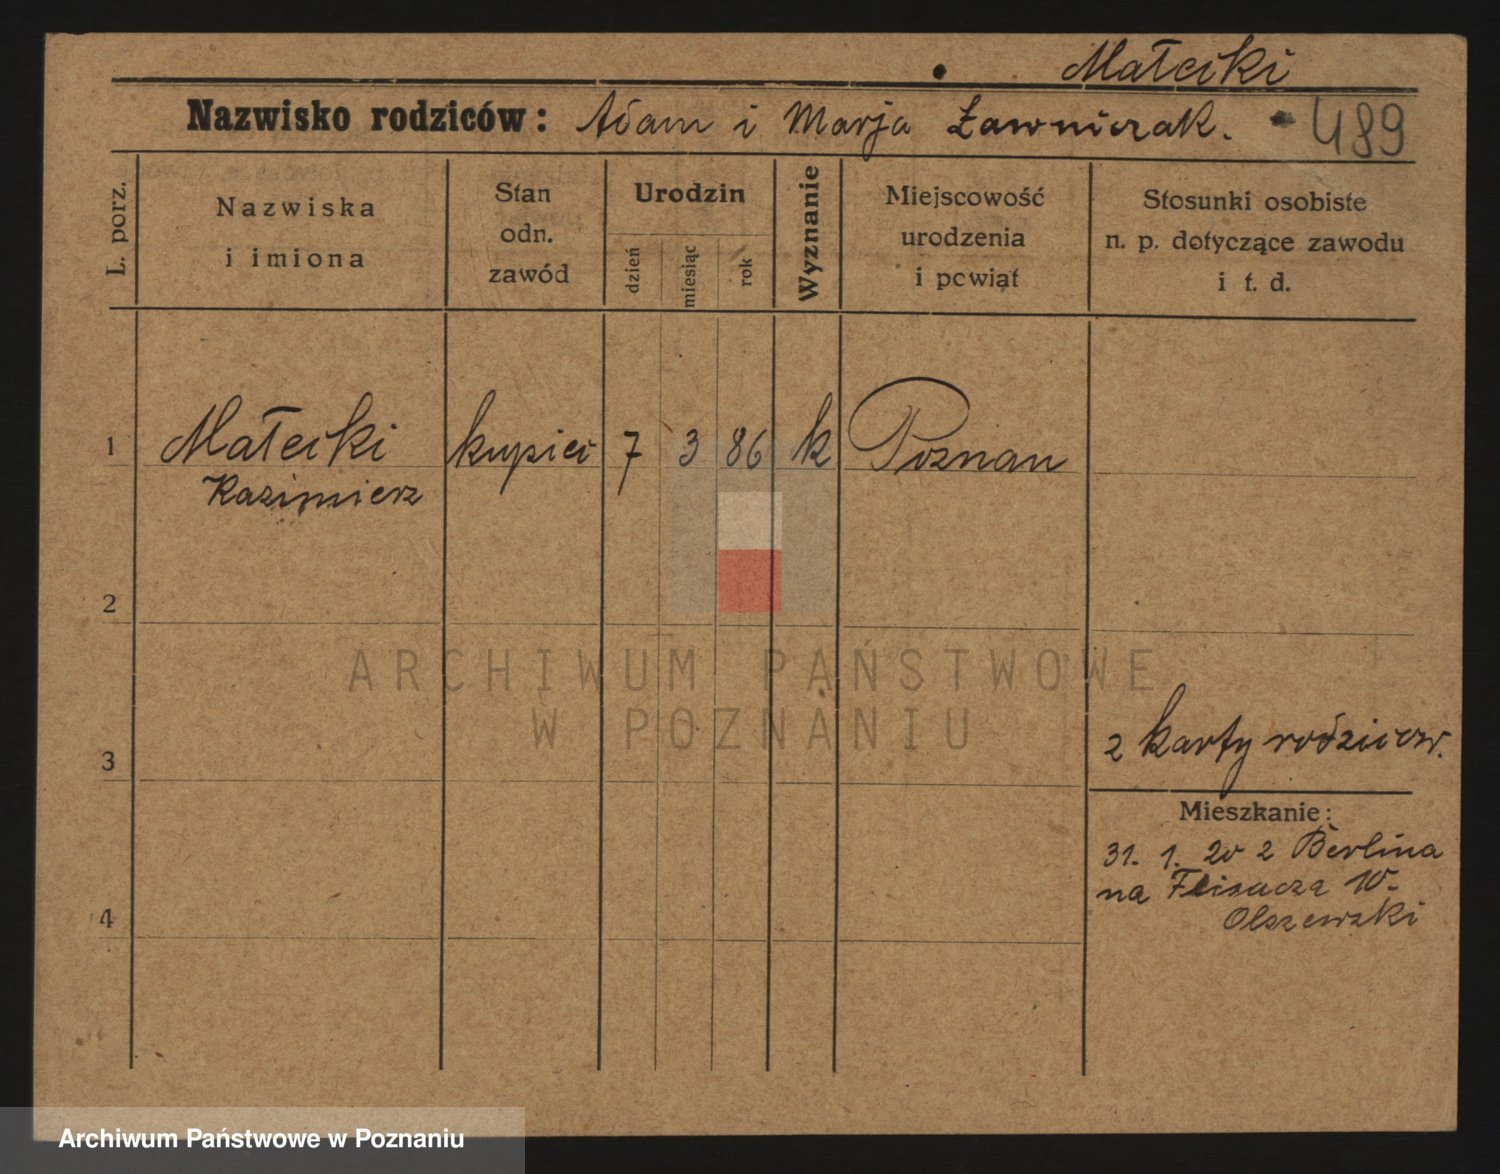 Małecki
Nazwisko rodziców: Adam i Marja Ławniczak. 489
L. porz.
Nazwiska
i imiona
Stan
odn.
zawód
Urodzin
dzień
miesiąc
rok
Wyznanie
Miejscowość
urodzenia
i powiat
Stosunki osobiste
n. p. dotyczące zawodu
i t. d.
1 Małecki kupiec 7 3 86 k Poznan
Kazimierz
2
ARCHIWUM PAŃSTWOWE
W POZNANIU
2 karty rodzicow.
3
Mieszkanie:
31. 1. 20 z Berlina
na 10.
4
Olszewski
Archiwum Państwowe w Poznaniu